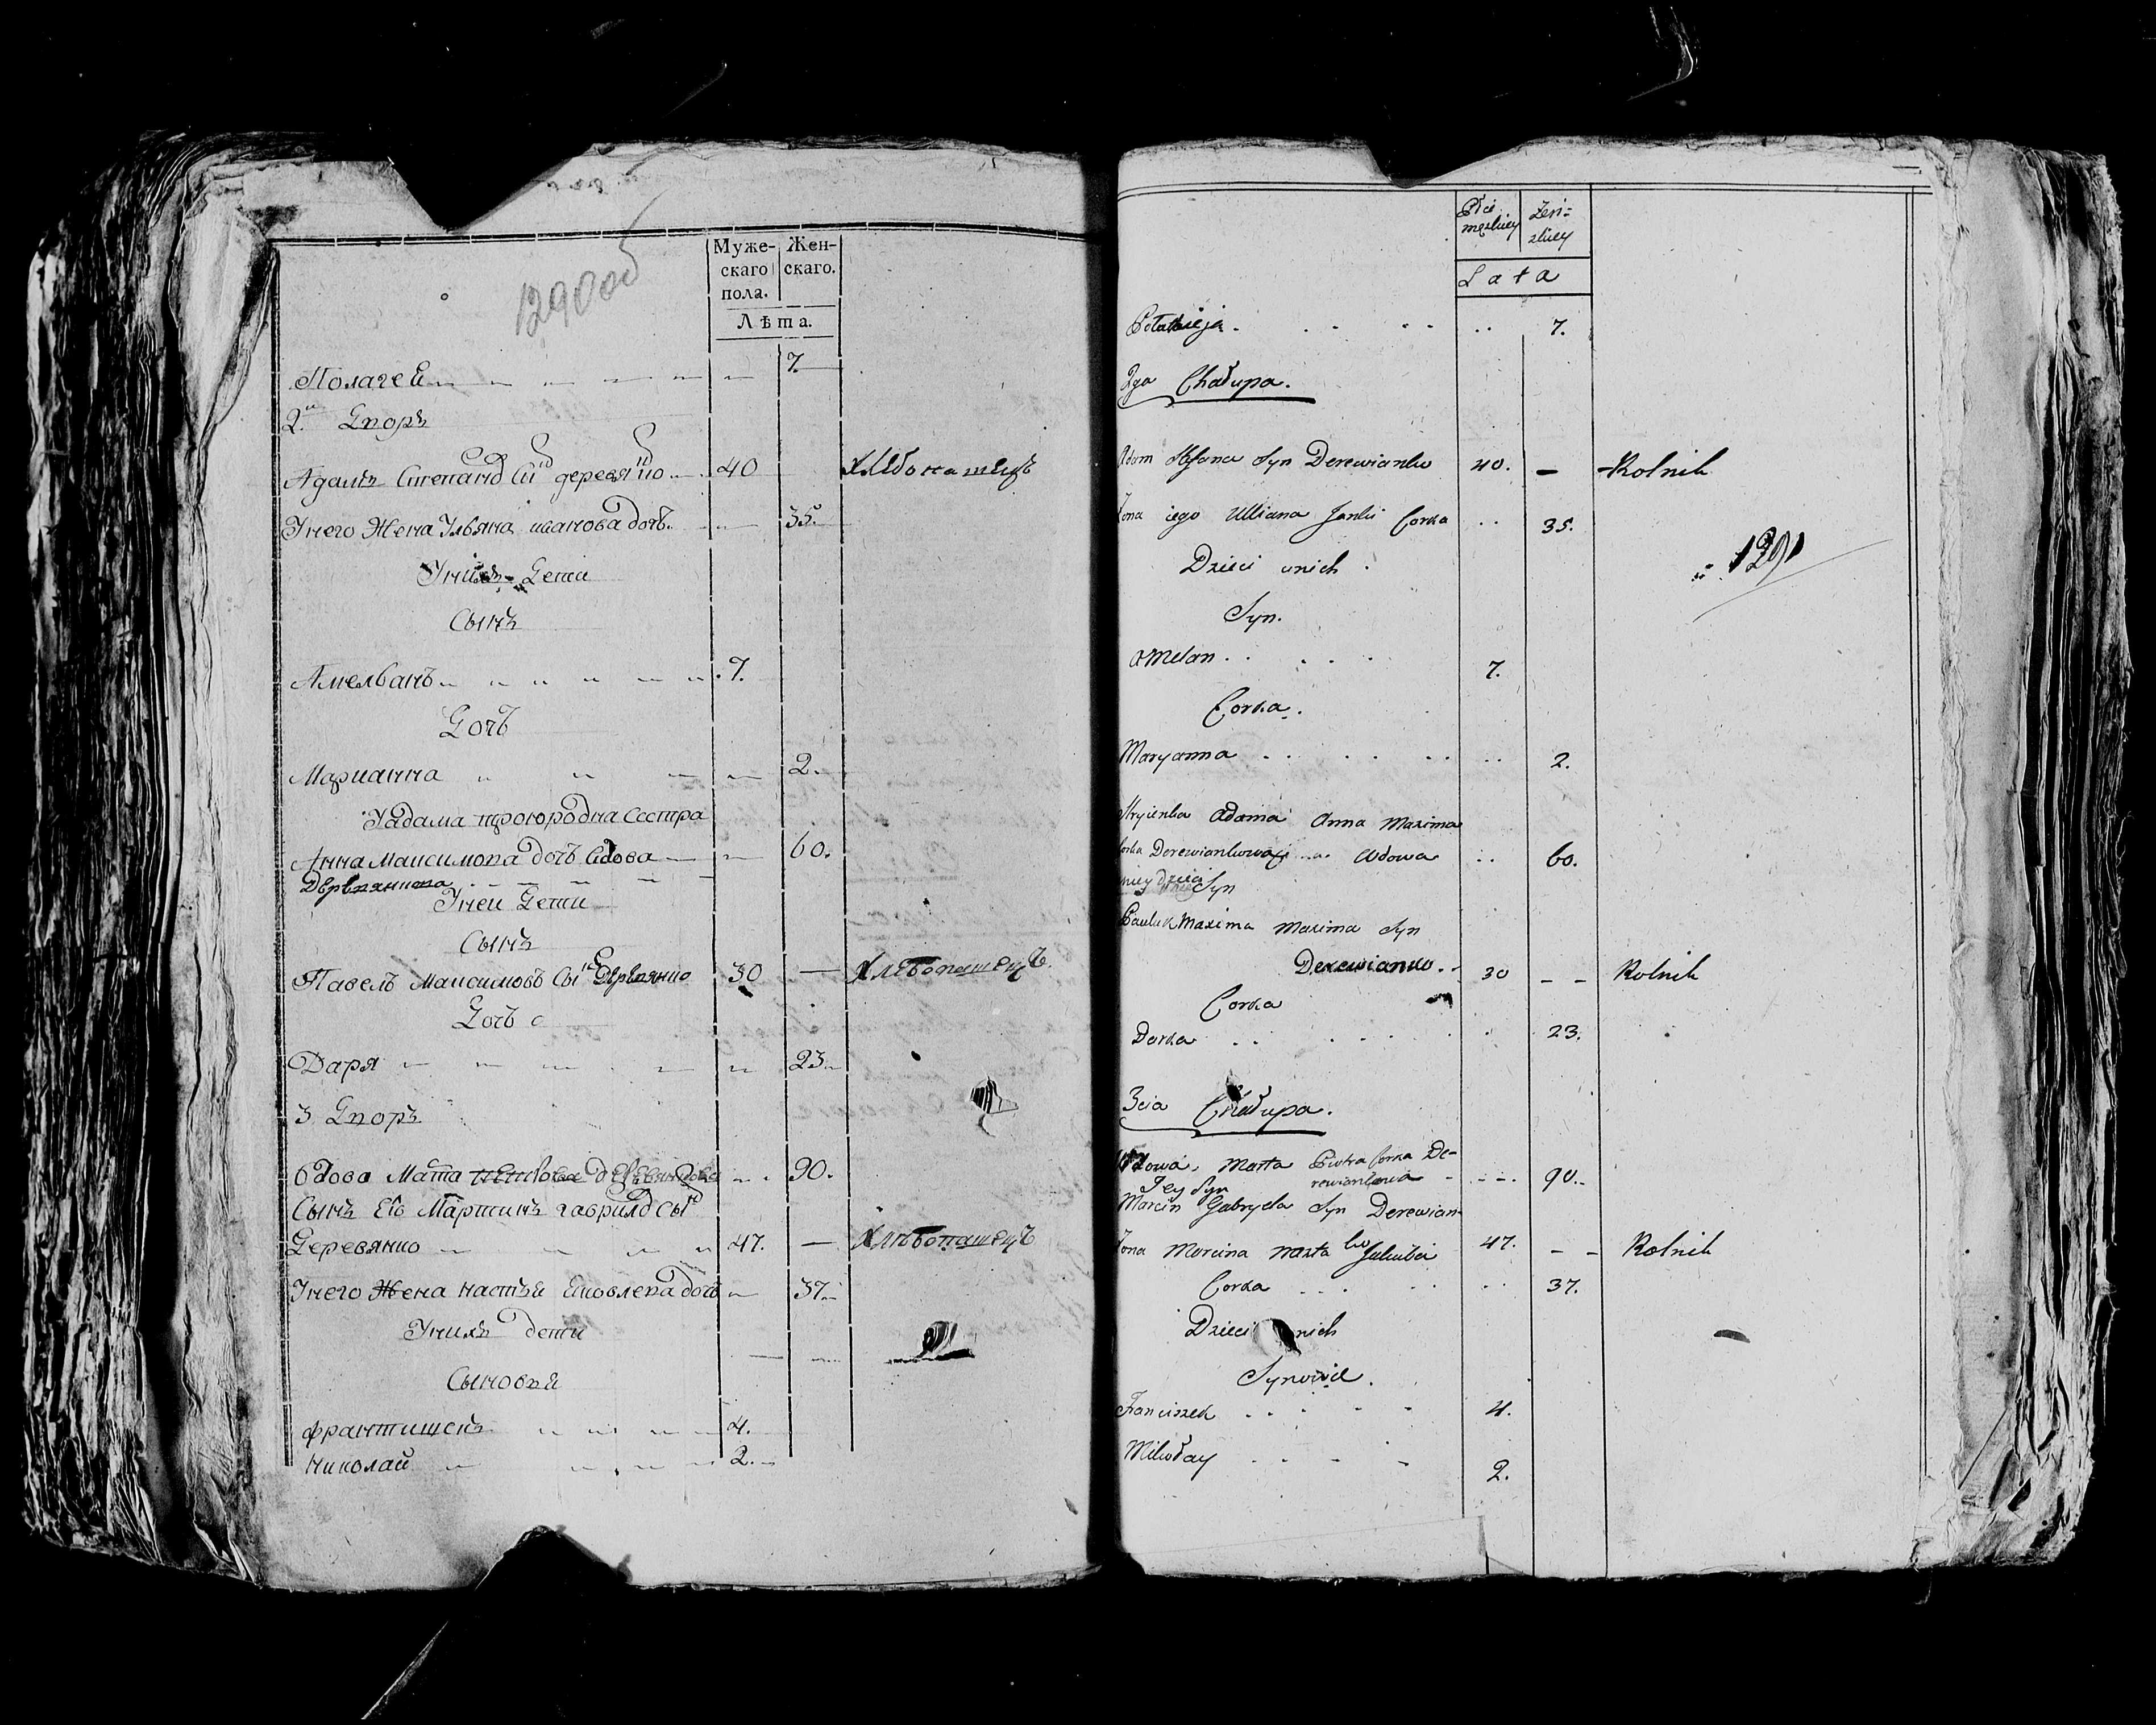 1290об
Муже-
скаго
пола.
Жен-
скаго.
Лѣта.
Полагея 7.
2й Дворъ
Адамъ Степановъ Сынъ деревянко 40 Хлѣбопашецъ
Унего Жена Ульяна иванова дочь 35.
Унихъ Дети
Сынъ
Амельянъ 7.
Дочь
Марианна 2.
Уадама троюродна Сестра
Анна Максимова дочь вдова 60.
Деревянкова
Уней Дети
Сынъ
Павелъ Максимовъ Сынъ Деревянко 30 — Хлѣбопашецъ
Дочь
Даря 23
3 Дворъ
вдова Марта деревянкова 90.
Сынъ Ее Мартинъ гаврилов Сынъ
Деревянко 47. — Хлѣбопашецъ
Унего Жена настья яковлева дочь 37
Унихъ дети
Сыновья
францишекъ 4.
николай 2.
Płci
męzkiey
Żeń=
skiey
Lata
Połahieja 7.
2ga Chałupa.
Adam Stefana Syn Derewianko 40. — Rolnik
Żona iego Ulliana Janki Corka 35.
Dzieci unich
1291
Syn.
Omelan 7.
Corka.
Maryanna 2.
Stryienka Adama Anna Maxima
Corka Derewiankowa Wdowa 60.
uniey Dzieci
Syn
Pauluk Maxima Syn
Derewianko. 30 — — Rolnik
Corka
Darka 23.
3cia Chałupa.
Wdowa, Marta Piotra Corka De-
rewiankowa 90.
Jey Syn
Marcin Gabryela Syn Derewian-
ko 47. — — Rolnik
Żona Marcina Nasta Jakuba
Corka 37.
Dzieci unich
Synowie.
Franciszek 4.
Mikołay 2.